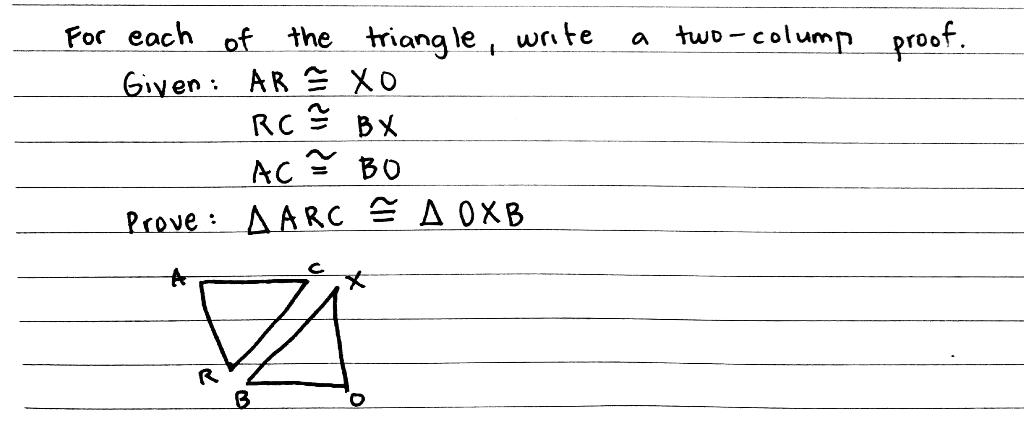 For each of the triangle, write a two-colump proof.
Given: AR ≅ XO
RC ≅ BX
AC ≅ BO
Prove: Δ ARC ≅ Δ OXB
A C X
R B O